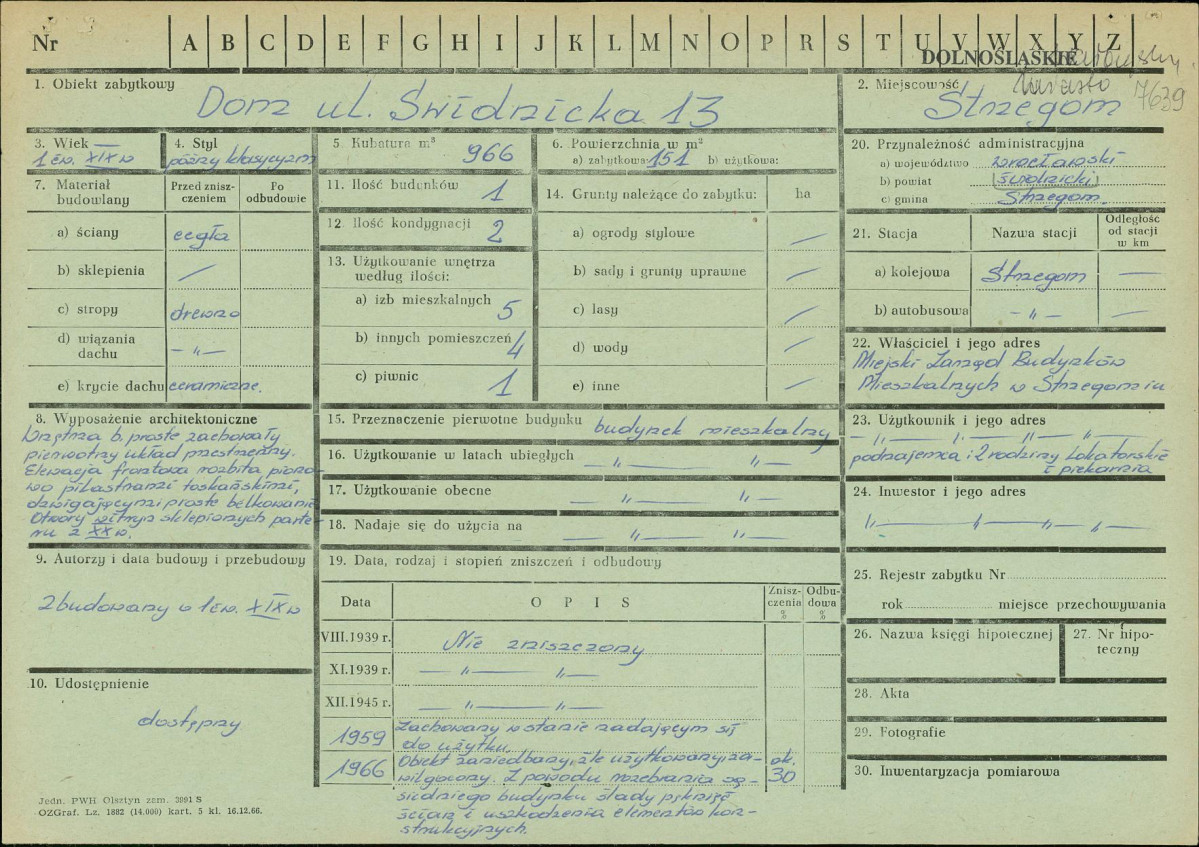 Nr A B C D E F G H I J K L M N O P R S T U V W X Y Z
DOLNOŚLĄSKIE
miasto 7639
1. Obiekt zabytkowy
Dom ul. Świdnicka 13
2. Miejscowość
Strzegom
3. Wiek
1 ćw. XIX w
4. Styl
późny klasycyzm
5. Kubatura m³
966
6. Powierzchnia w m²
a) zabytkowa 151 b) użytkowa:
7. Materiał budowlany
Przed zniszczeniem
Po odbudowie
a) ściany cegła
b) sklepienia —
c) stropy drewno
d) wiązania dachu — „ —
e) krycie dachu ceramiczne.
8. Wyposażenie architektoniczne
Wnętrza b. proste zachowały
pierwotny układ przestrzenny.
Elewacja frontowa rozbita piono-
wo pilastrami toskańskimi,
dźwigającymi proste belkowanie
Otwory witryn sklepionych parte-
ru z XX w.
9. Autorzy i data budowy i przebudowy
Zbudowany w 1 ćw. XIX w
10. Udostępnienie
dostępny
11. Ilość budynków
1
12. Ilość kondygnacji
2
13. Użytkowanie wnętrza
według ilości:
a) izb mieszkalnych 5
b) innych pomieszczeń 4
c) piwnic 1
14. Grunty należące do zabytku: ha
a) ogrody stylowe —
b) sady i grunty uprawne —
c) lasy —
d) wody —
e) inne —
15. Przeznaczenie pierwotne budynku budynek mieszkalny
16. Użytkowanie w latach ubiegłych — „ — „ —
17. Użytkowanie obecne — „ — „ —
18. Nadaje się do użycia na — „ — „ —
19. Data, rodzaj i stopień zniszczeń i odbudowy
Data
O P I S
Znisz-
czenia
%
Odbu-
dowa
%
VIII.1939 r. Nie zniszczony
XI.1939 r. — „ — „ —
XII.1945 r. — „ — „ —
1959 Zachowany w stanie nadającym się
do użytku.
1966 Obiekt zaniedbany, źle użytkowany, za- ok.
wilgocony. Z powodu rozebrania są- 30
siedniego budynku ślady pęknięć
ścian i uszkodzenia elementów kon-
strukcyjnych.
20. Przynależność administracyjna
a) województwo wrocławski
b) powiat (świdnicki)
c) gmina Strzegom.
21. Stacja
Nazwa stacji
Odległość
od stacji
w km
a) kolejowa Strzegom —
b) autobusowa — „ — —
22. Właściciel i jego adres
Miejski Zarząd Budynków
Mieszkalnych w Strzegomiu
23. Użytkownik i jego adres
— „ — „ — „ — „ —
podnajemca: 2 rodziny lokatorskie
i piekarnia
24. Inwestor i jego adres
„ — „ — „ — „ —
25. Rejestr zabytku Nr
rok miejsce przechowywania
26. Nazwa księgi hipotecznej
27. Nr hipo-
teczny
28. Akta
29. Fotografie
30. Inwentaryzacja pomiarowa
Jedn. PWH Olsztyn zam. 3991 S
OZGraf. Lz. 1882 (14.000) kart. 5 kl. 16.12.66.